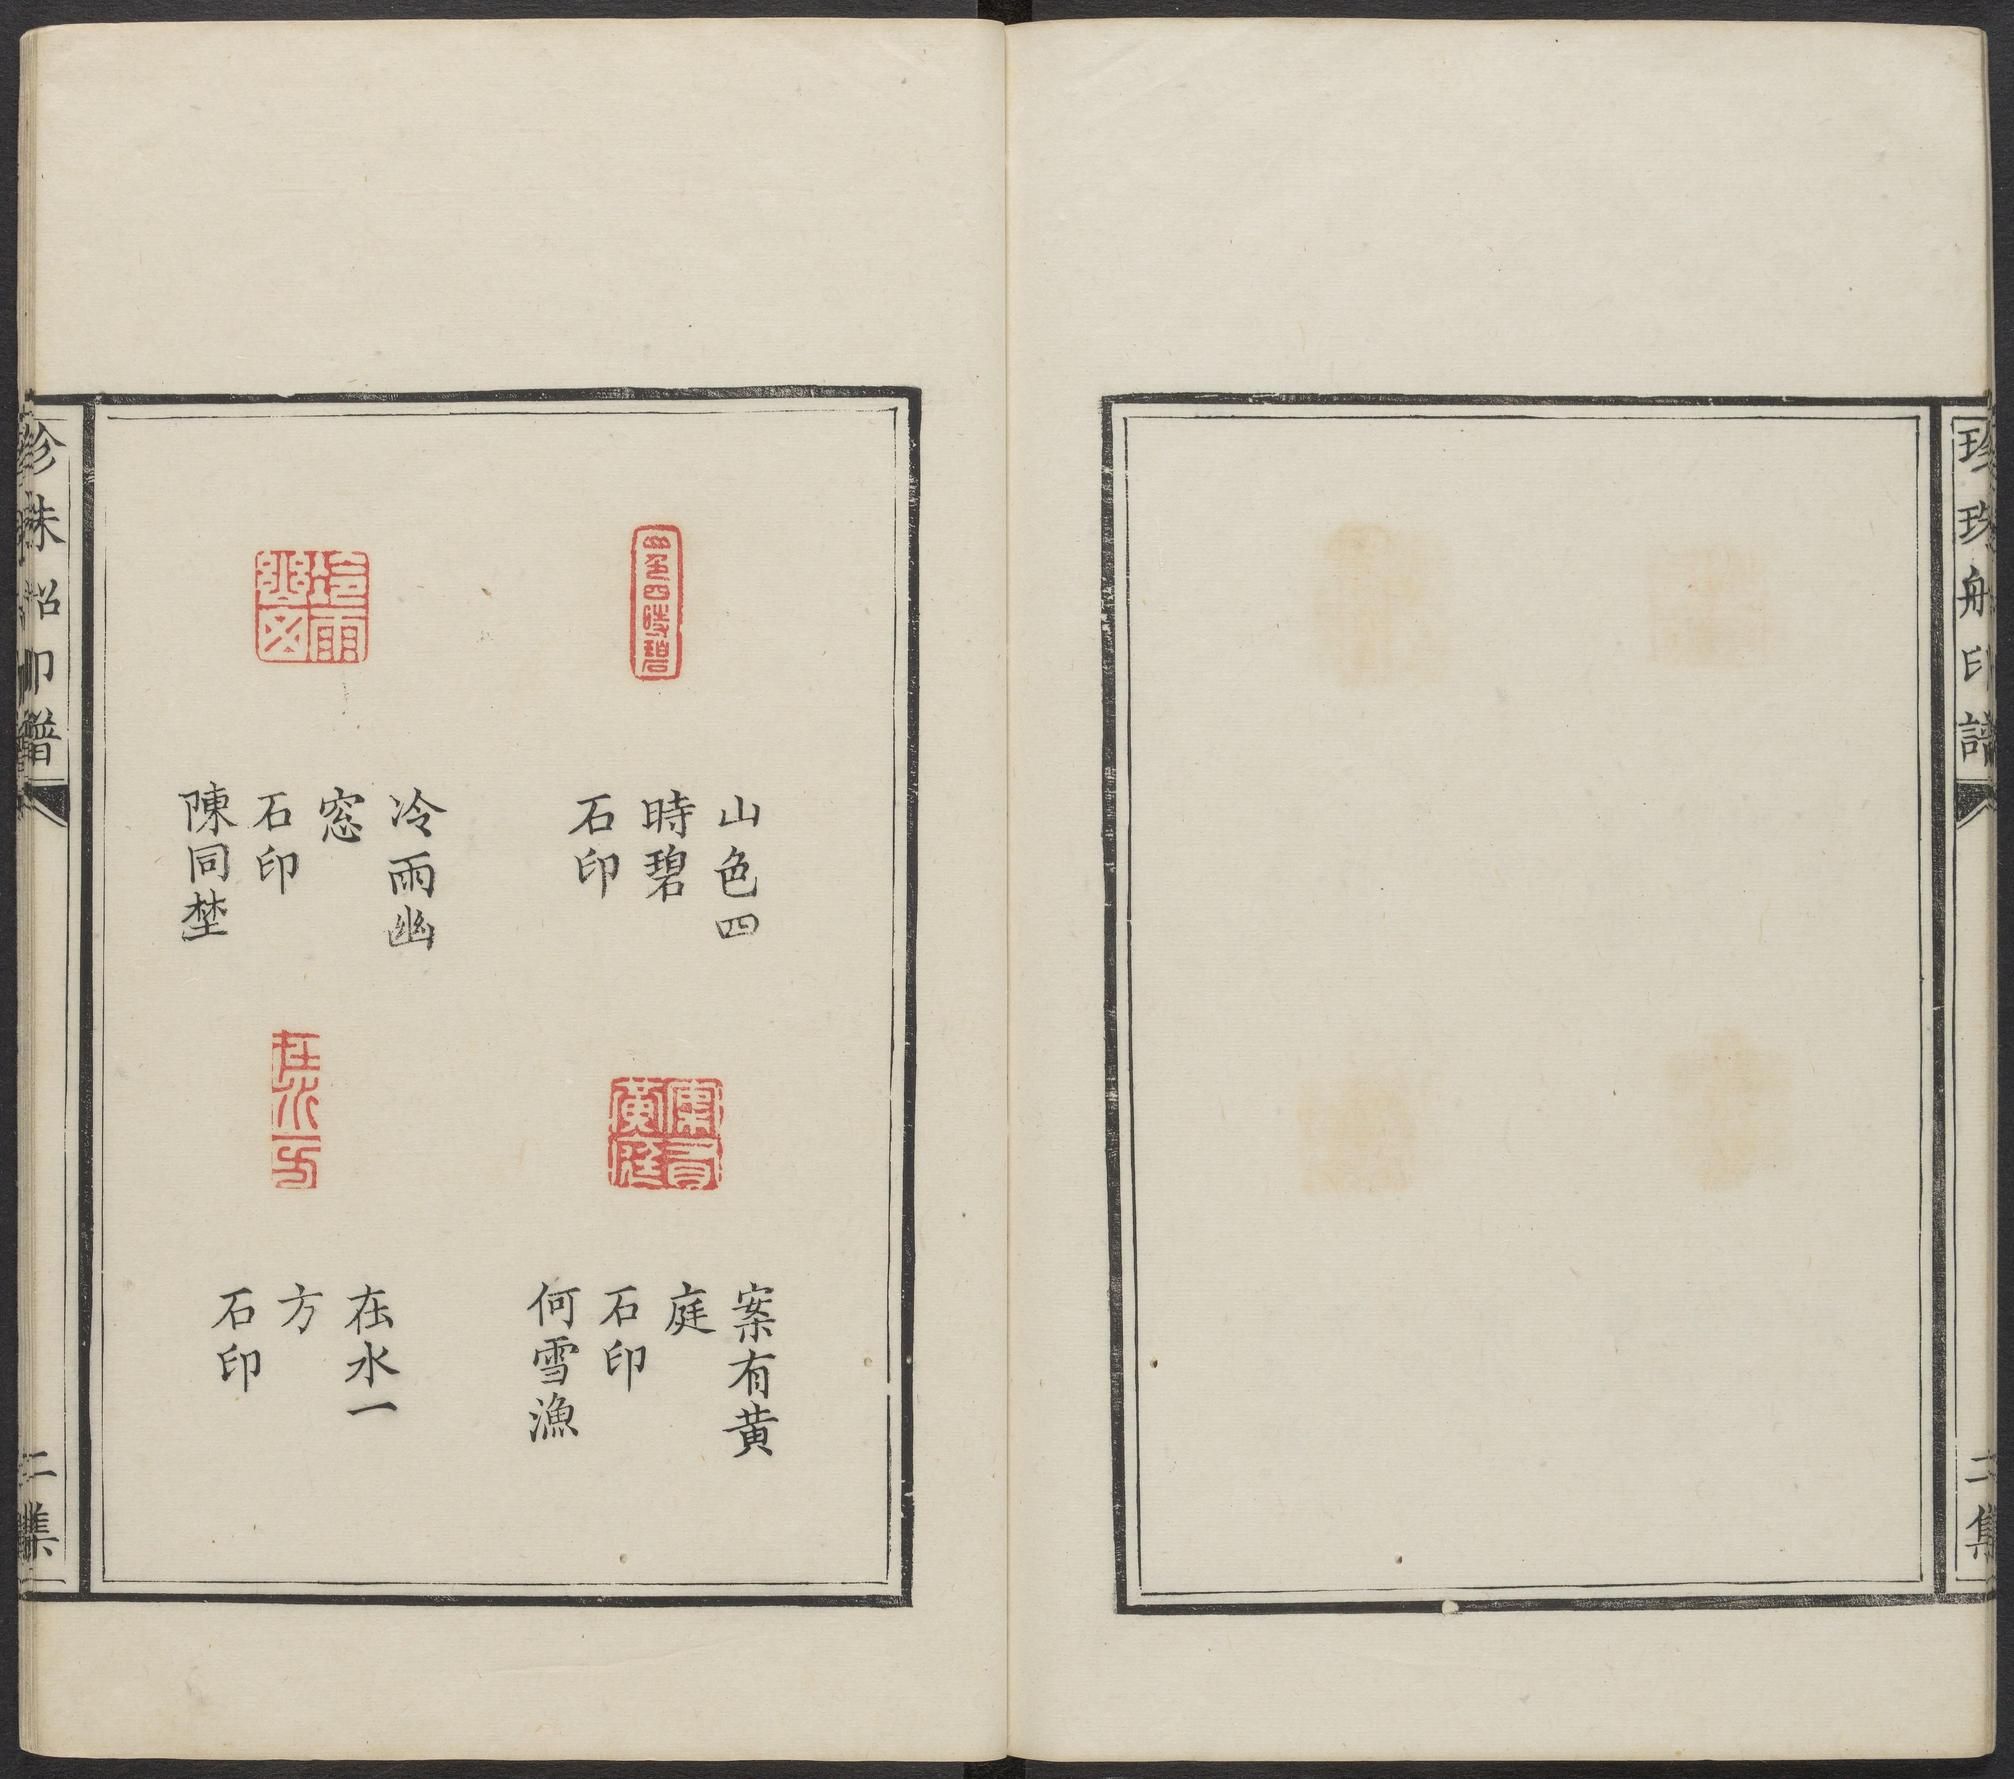 珍珠船印譜
二集
山色四時碧
山色四
時碧
石印
案有黃庭
案有黄
庭
石印
何雪漁
冷雨幽窓
冷雨幽
窓
石印
陳同埜
在水一方
在水一
方
石印
珍珠船印譜
二集